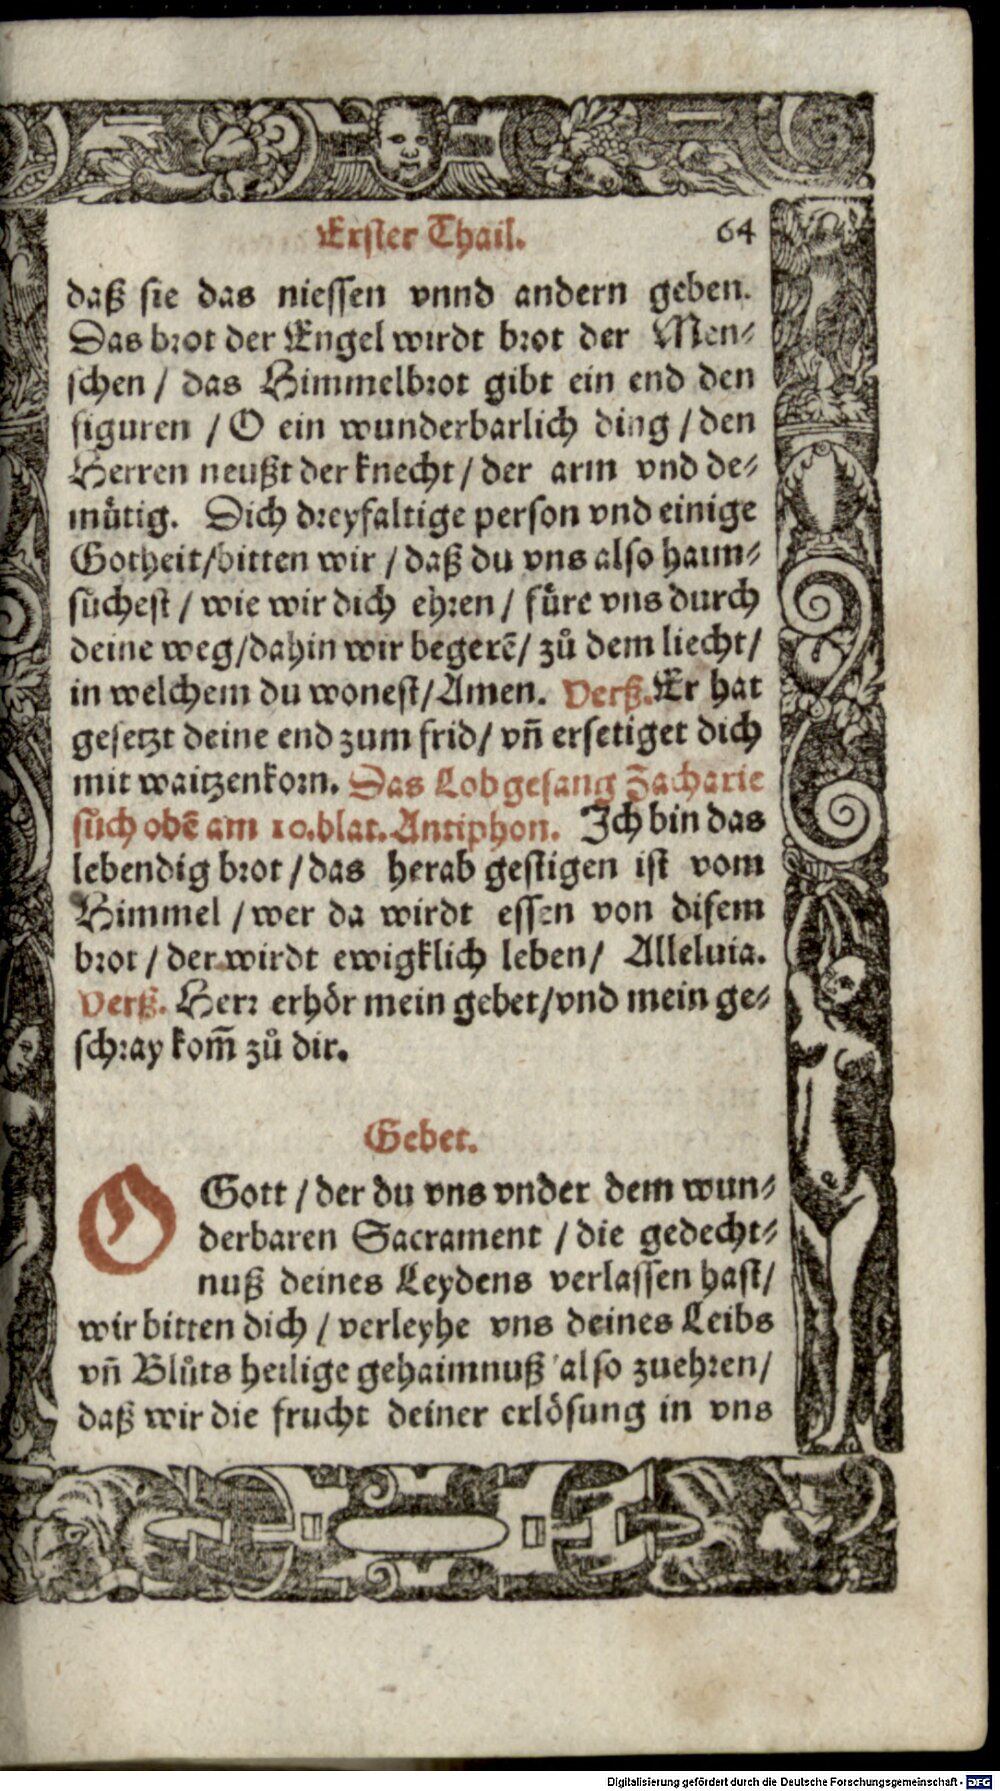 Erster Thail. 64
daß sie das niessen vnnd andern geben.
Das brot der Engel wirdt brot der Men⸗
schen / das Himmelbrot gibt ein end den
figuren / O ein wunderbarlich ding / den
Herren neußt der knecht / der arm vnd de⸗
muͤtig. Dich dreyfaltige person vnd einige
Gotheit / bitten wir / daß du vns also haim⸗
suͤchest / wie wir dich ehren / fuͤre vns durch
deine weg / dahin wir begerẽ / zů dem liecht /
in welchem du wonest / Amen. Verß. Er hat
gesetzt deine end zum frid / vñ ersetiget dich
mit waitzenkorn. Das Lobgesang Zacharie
sůch obẽ am 10. blat. Antiphon. Ich bin das
lebendig brot / das herab gestigen ist vom
Himmel / wer da wirdt essen von disem
brot / der wirdt ewigklich leben / Alleluia.
Verß. Herr erhör mein gebet / vnd mein ge⸗
schray kom̃ zů dir.
Gebet.
O Gott / der du vns vnder dem wun⸗
derbaren Sacrament / die gedecht⸗
nuß deines Leydens verlassen hast /
wir bitten dich / verleyhe vns deines Leibs
vñ Blůts heilige gehaimnuß also zuehren /
daß wir die frucht deiner erlösung in vns
Digitalisierung gefördert durch die Deutsche Forschungsgemeinschaft - DFG